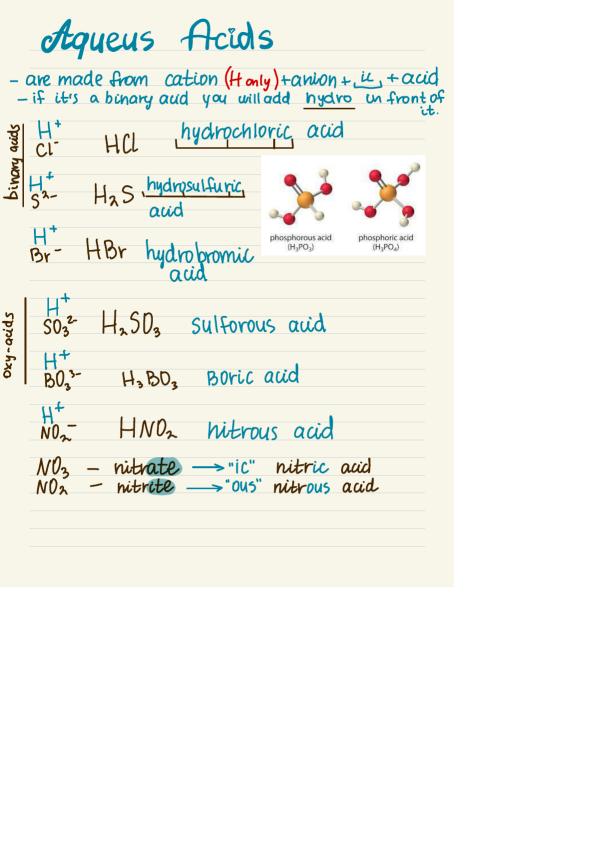 Aqueus Acids
- are made from cation (H only) + anion + ic + acid
- if it's a binary acid you will add hydro in front of it.
binary acids
H⁺
Cl⁻ HCl hydrochloric acid
H⁺
S²⁻ H₂S hydrosulfuric acid
H⁺
Br⁻ HBr hydrobromic acid
phosphorous acid
(H₃PO₃)
phosphoric acid
(H₃PO₄)
oxy-acids
H⁺
SO₃²⁻ H₂SO₃ sulforous acid
H⁺
BO₃³⁻ H₃BO₃ Boric acid
H⁺
NO₂⁻ HNO₂ nitrous acid
NO₃ - nitrate → "ic" nitric acid
NO₂ - nitrite → "ous" nitrous acid